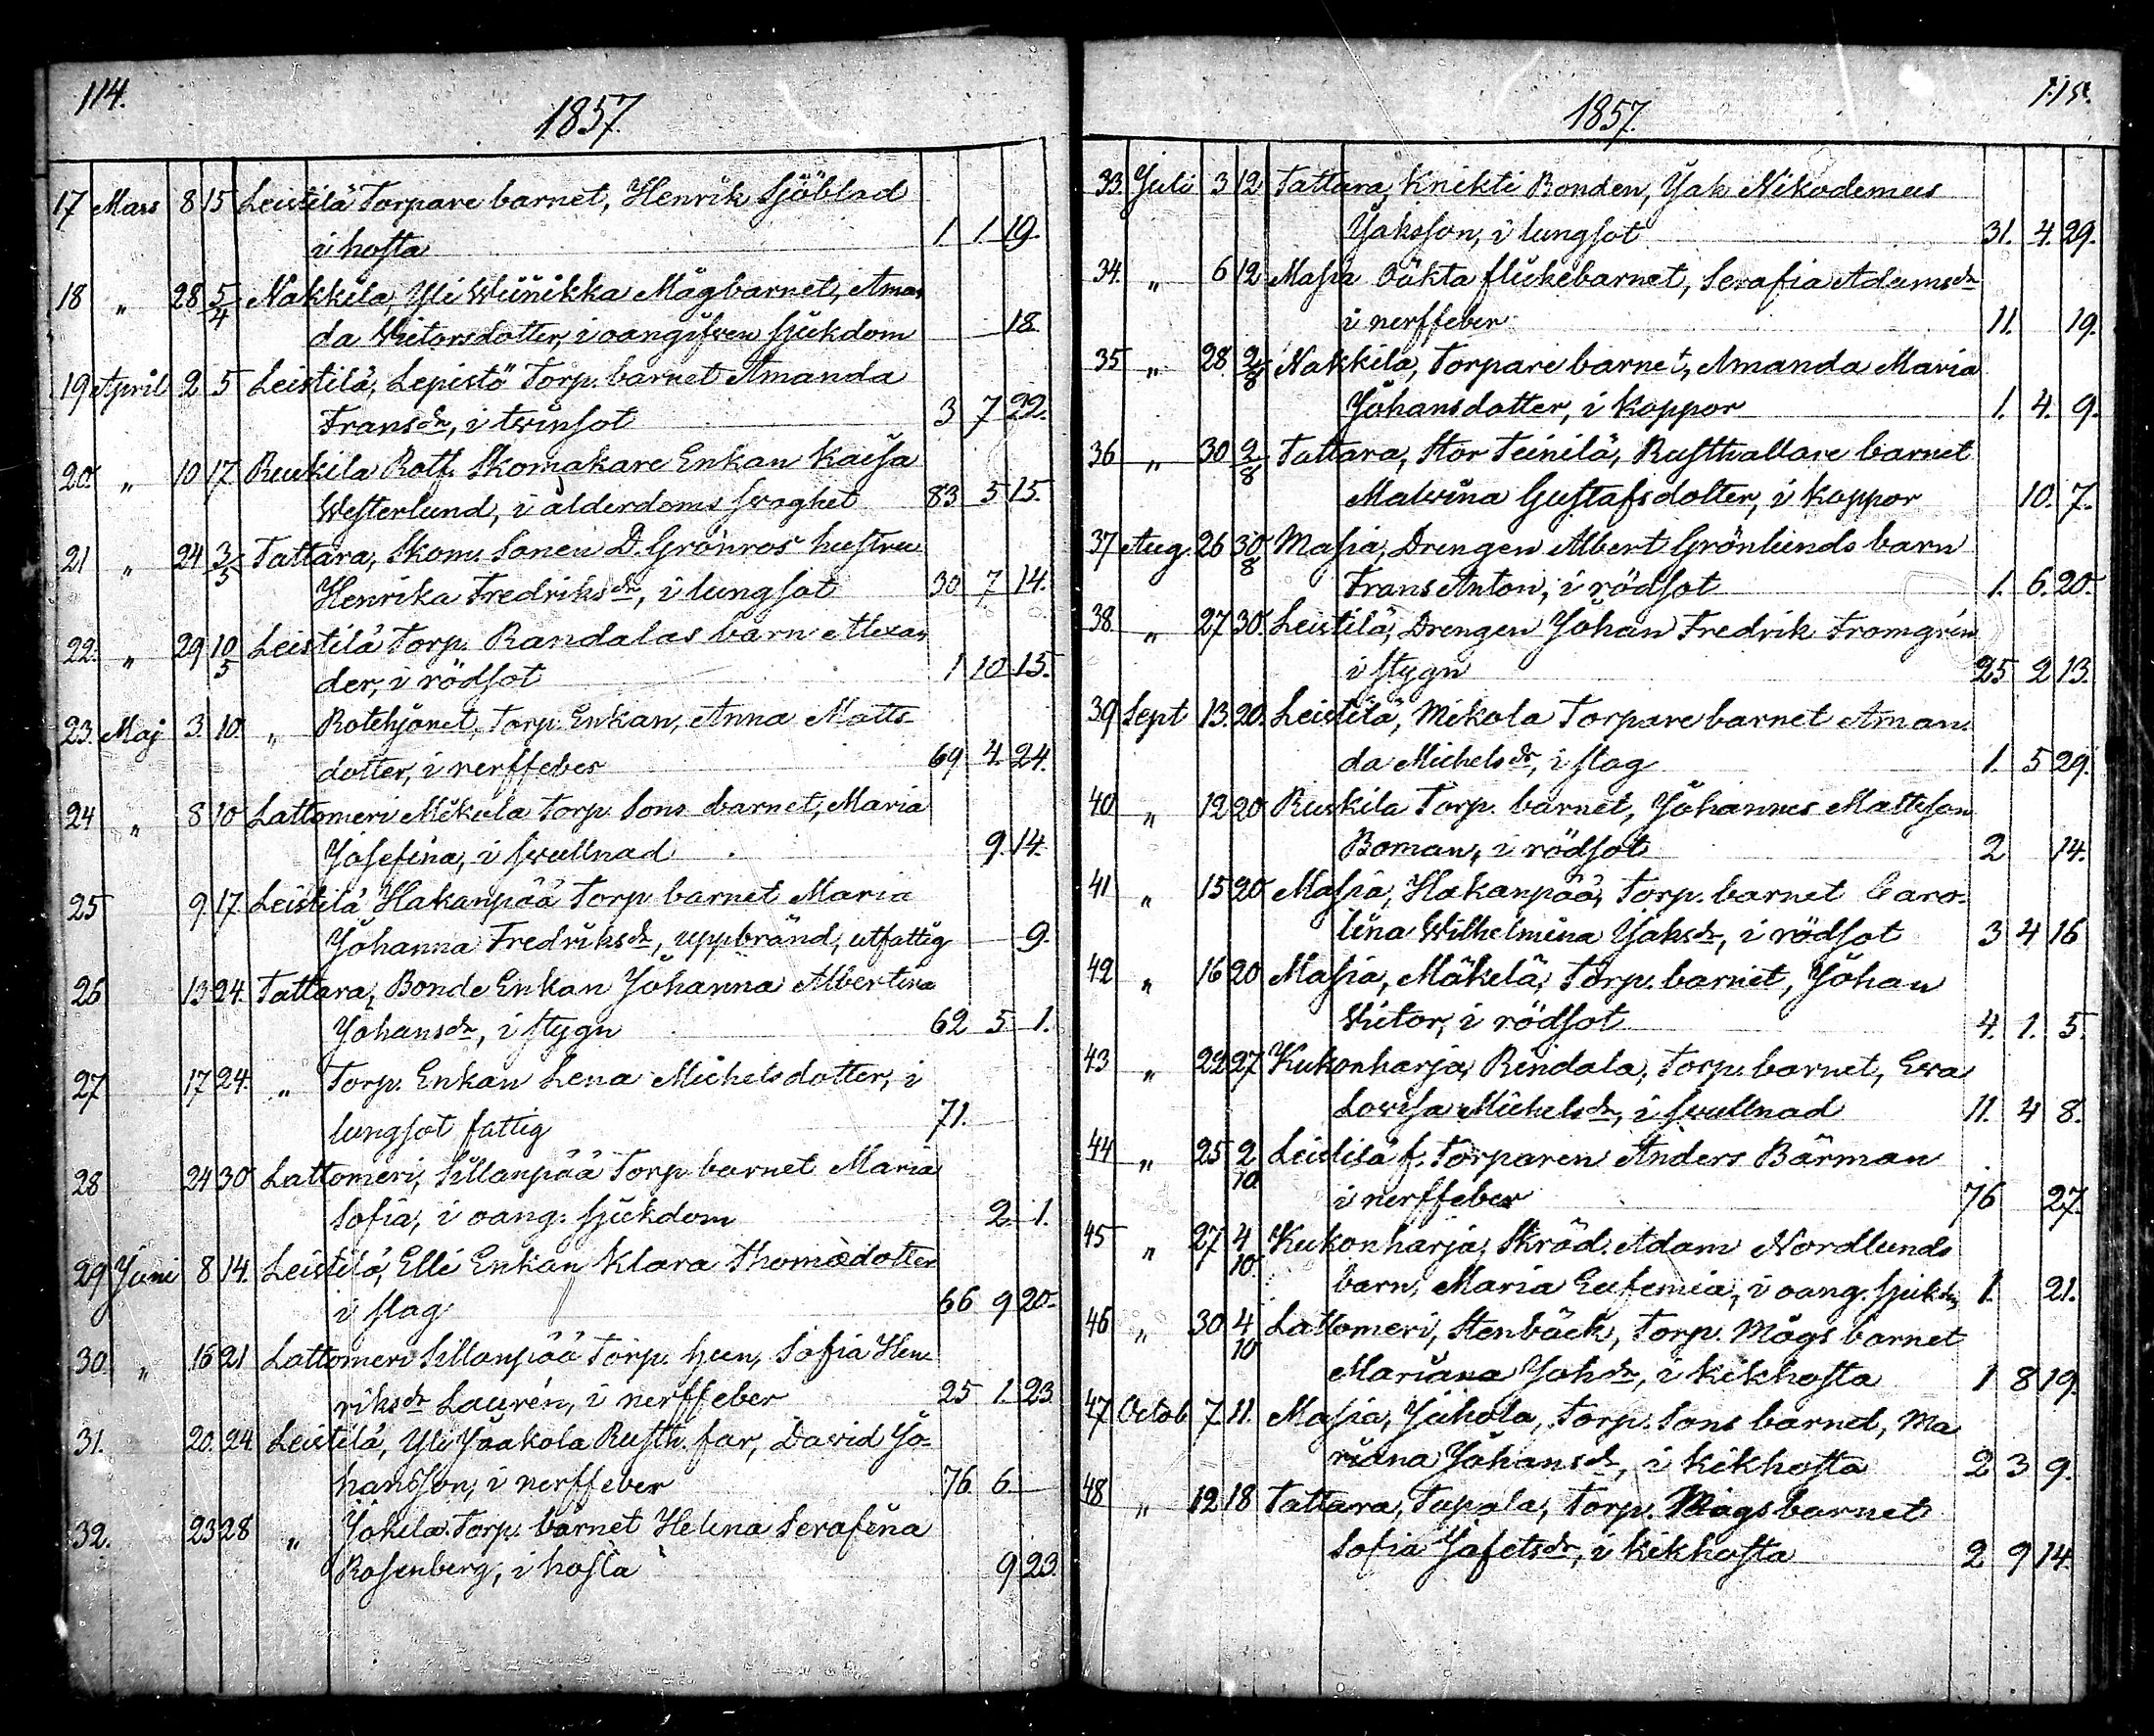 114.
1857.
17 Mars 8 15 Leistilä Torpare barnet, Henrik Sjöblad
i hosta 1. 1. 19.
18 " 28 5/4 Nakkila, Yli Wiinikka Mågbarnet, Aman
da Victorsdotter, i oangifven sjukdom 18.
19 April 2 5 Leistilä, Lepistö Torp. barnet Amanda
Fransdr, i twinsot 3 7 22.
20. " 10 17 Ruskila Rotf. Skomakare Enkan Kaisa
Westerlund, i ålderdoms swaghet 83 5 15.
21 " 24 3/5 Tattara, Skom. Sonen D. Grönros hustru
Henrika Fredriksdr, i lungsot 30 7 14.
22. " 29 10/5 Leistilä Torp. Randalas barn Alexan
der, i rödsot 1 10 15.
23. Maj 3. 10. " Rotehjonet, Torp. Enkan, Anna Matts
dotter, i nerffeber 69 4. 24.
24 " 8 10 Lattomeri Mikola Torp. Sons barnet, Maria
Josefina, i swullnad 9. 14.
25 9 17 Leistilä Hakanpää Torp barnet Maria
Johanna Fredriksdr, uppbränd, utfattig 9.
26 13 24. Tattara, Bonde Enkan Johanna Albertina
Johansdr, i stygn 62 5 1.
27 17 24. " Torp. Enkan Lena Michelsdotter, i
lungsot fattig 71.
28 24 30 Lattomeri, Sillanpää Torp barnet Maria
Sofia, i oang. sjukdom 2. 1.
29 Juni 8 14. Leistilä, Elli Enkan Klara Thomædotter
i slag 66 9 20.
30. " 16 21 Lattomeri Sillanpää Torp. hun, Sofia Hen
riksdr Laurén, i nerffeber 25 1. 23
31. 20. 24. Leistilä, Yli Jaakola Rusth. far, David Jo-
hansson, i nerffeber 76 6.
32. 23 28 " Jokila Torp. barnet Helena Serafina
Rosenberg, i hosta 9 23.
115.
1857.
33. Juli 3 12 Tattara, Knikti Bonden, Jak Nikodemus
Jaksson, i lungsot 31. 4. 29.
34. " 6 12 Masia flickebarnet, Serafia Adamsdr
i nerffeber 11. 19.
35 " 28 2/8 Nakkila, Torpare barnet, Amanda Maria
Johansdotter, i koppor 1. 4. 9.
36 " 30 2/8 Tattara, Stor Teinilä, Rusthallare barnet
Malwina Gustafsdotter, i koppor 10. 7.
37 Aug. 26 30/8 Masia, Drengen Albert Grönlunds barn
Frans Anton, i rödsot 1. 6. 20.
38 " 27 30. Leistilä, Drengen Johan Fredrik Fromgrén
i stygn 25 2 13.
39 Sept 13. 20. Leistilä, Mikola Torpare barnet Aman
da Michelsdr, i slag 1. 5 29.
40 " 12 20 Ruskila Torp. barnet, Johannes Mattsson
Boman, i rödsot 2 14.
41 " 15 20 Masia, Hakanpää, Torp. barnet Caro-
lina Wilhelmina Jaksdr, i rödsot 3 4 16
42 " 16 20 Masia, Mäkelä, Torp. barnet, Johan
Victor, i rödsot 4. 1. 5.
43 " 22 27 Kukonharja, Rindala, Torp. barnet, Eva
Lovisa Michelsdr, i swullnad 11. 4 8.
44 " 25 2/10 Leistilä f. Torparen Anders Bärman
i nerffeber 76 27.
45 " 27 4/10. Kukonharja, Skräd. Adam Nordlunds
barn, Maria Eufemia, i oang. sjukdm 1. 21.
46 " 30 4/10 Lattomeri, Stenbäck, Torp. Mågs barnet
Mariana Johdr, i kikhosta 1 8 19.
47 Octob 7 11. Masia, Juhola, Torp. Sons barnet, Ma
riana Johansdr, i kikhosta 2 3 9.
48 " 12 18 Tattara, Tupala, Torp. Mågs barnet
Sofia Jafetsdr, i kikhosta 2 9 14.